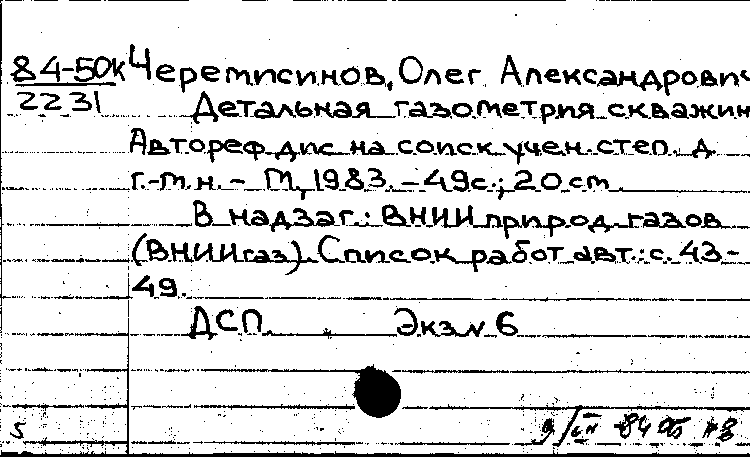 84-50к Черемисинов, Олег Александрович
2231 Детальная газометрия скважин
Автореф.дис на соиск.учен.степ. д.
г.-м.н. - М., 1983. - 49с.; 20 см.
В надзаг.: ВНИИ природ. газов
(ВНИИгаз). Список работ авт.: с. 43-
49.
ДСП. Экз № 6
5